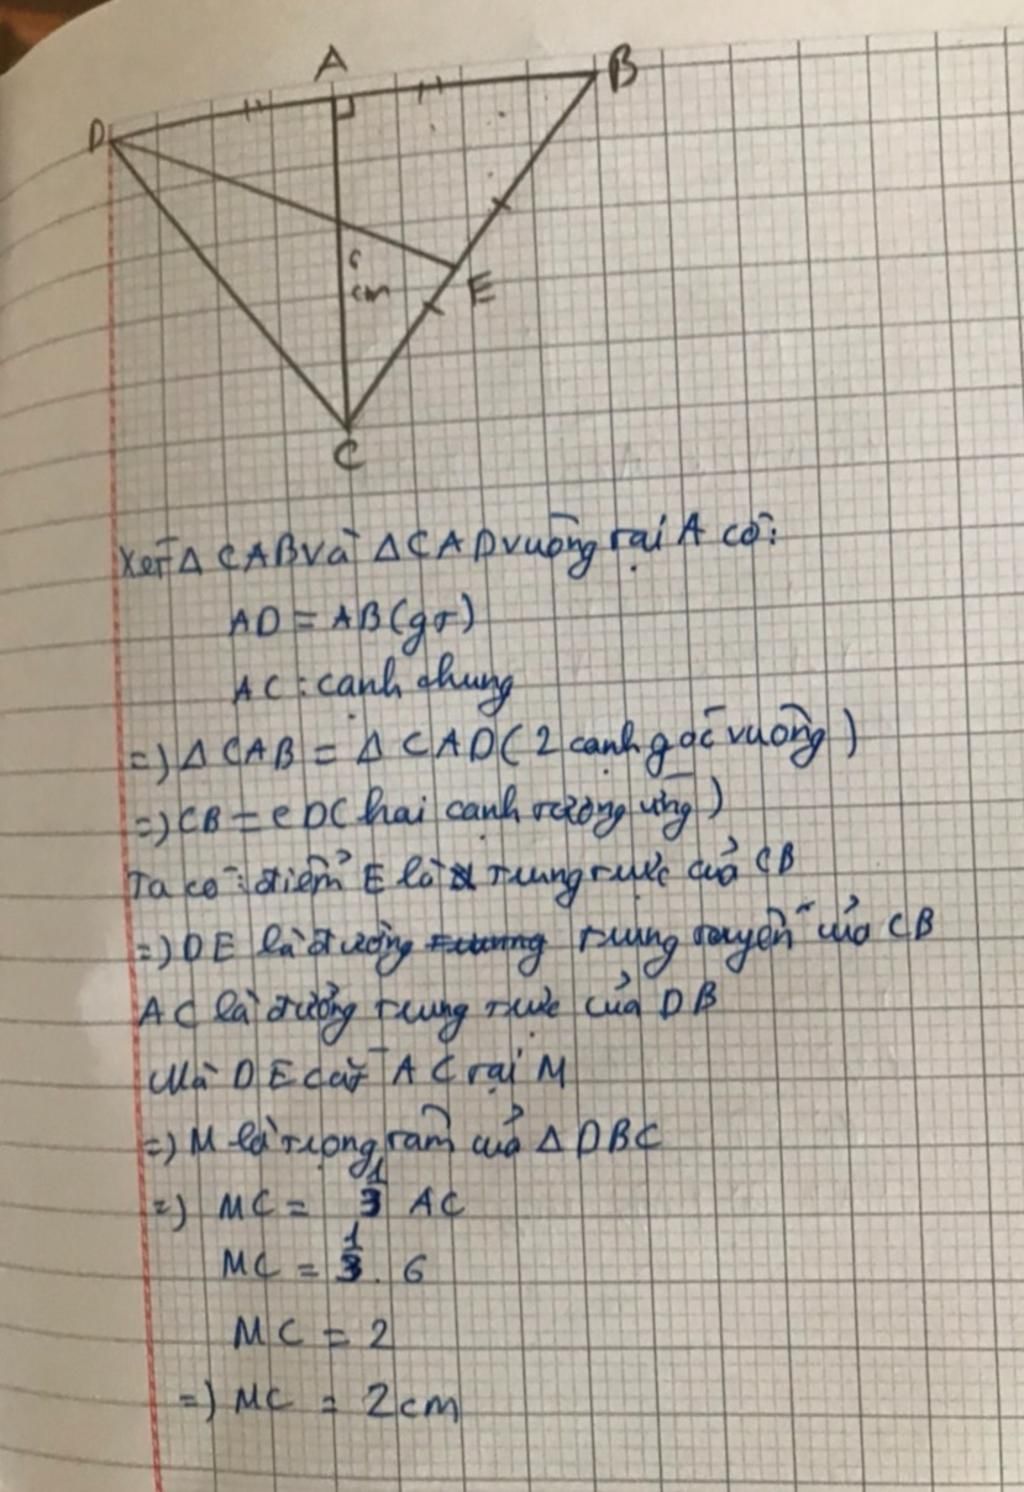 A
B
D
6
cm
E
C
Xét Δ CAB và Δ CAD vuông tại A có:
AD = AB (gt)
AC : cạnh chung
=) Δ CAB = Δ CAD ( 2 cạnh góc vuông )
=) CB = CD ( hai cạnh tương ứng )
Ta có : điểm E là trung trực của CB
=) DE là đường trung tuyến của CB
AC là đường trung trực của DB
Mà DE cắt AC tại M
=) M là trọng tâm của Δ DBC
=) MC = 1/3 AC
MC = 1/3 . 6
MC = 2
=) MC = 2cm